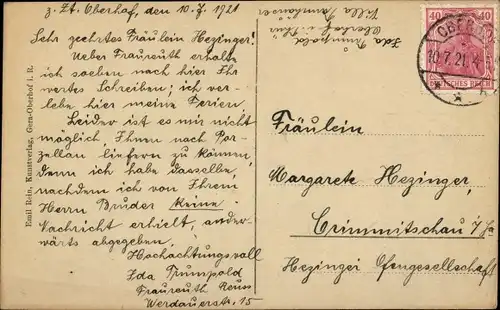 z. Zt. Oberhof, den 10.7.1921
Sehr geehrtes Fräulein Hezinger!
Ueber Fraureuth erhalte
ich soeben nach hier Ihr
wertes Schreiben; ich ver-
lebe hier meine Ferien.
Leider ist es mir nicht
möglich, Ihnen noch Por-
zellan liefern zu können,
denn ich habe dasselbe,
nachdem ich von Ihrem
Herrn Bruder keine
Nachricht erhielt, ander-
wärts abgegeben.
Hochachtungsvoll
Ida Trumpold
Fraureuth Reuss
Werdauerstr. 15
Emil Rein, Kunstverlag, Gera-Oberhof i. R.
Ida Trumpold
Oberhof i. Thür
Villa
40 40
DEUTSCHES REICH
OBERHOF
10.7.21. 4
Fräulein
Margarete Hezinger,
Crimmitschau i/Sa
Hezinger Ofengesellschaft